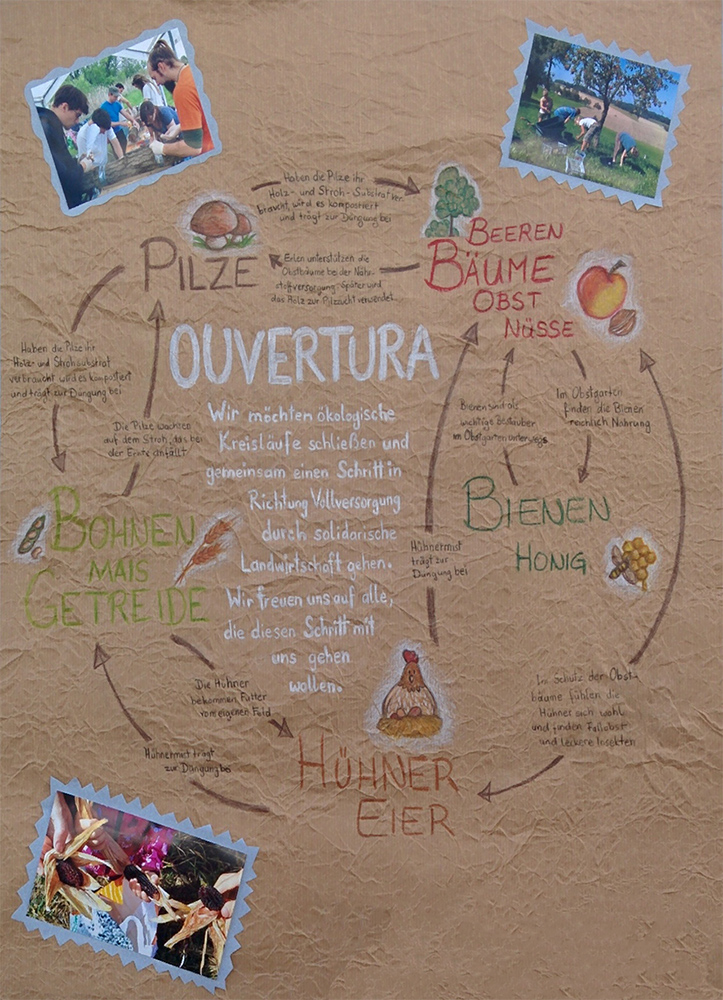 Haben die Pilze ihr
Holz- und Stroh-Substrat ver-
braucht, wird es kompostiert
und trägt zur Düngung bei
PILZE
Erlen unterstützen die
Obstbäume bei der Nähr-
stoffversorgung. Später wird
das Holz zur Pilzzucht verwendet.
BEEREN
BÄUME
OBST
NÜSSE
Haben die Pilze ihr
Holz- und Strohsubstrat
verbraucht wird es kompostiert
und trägt zur Düngung bei
Die Pilze wachsen
auf dem Stroh, das bei
der Ernte anfällt
OUVERTURA
Wir möchten ökologische
Kreisläufe schließen und
gemeinsam einen Schritt in
Richtung Vollversorgung
durch solidarische
Landwirtschaft gehen.
Wir freuen uns auf alle,
die diesen Schritt mit
uns gehen
wollen.
Bienen sind als
wichtige Bestäuber
im Obstgarten unterwegs
Im Obstgarten
finden die Bienen
reichlich Nahrung
BOHNEN
MAIS
GETREIDE
BIENEN
HONIG
Hühnermist
trägt zur
Düngung bei
Die Hühner
bekommen Futter
vom eigenen Feld
Im Schutz der Obst-
bäume fühlen die
Hühner sich wohl
und finden Fallobst
und leckere Insekten
Hühnermist trägt
zur Düngung bei
HÜHNER
EIER